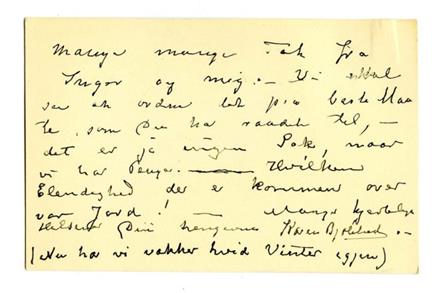 Mange mange Tak fra
Inger og mig. – Vi skal
se at ordne det paa beste Maa
te, som Du har raadet til, –
det er jo ingen Sak, naar
vi har Penge. — Hvilken
Elendighed der er kommen over
vor Jord! — Mange kjærlige
Hilsener Din hengivne
(Nu har vi vakker hvid Vinter igjen)